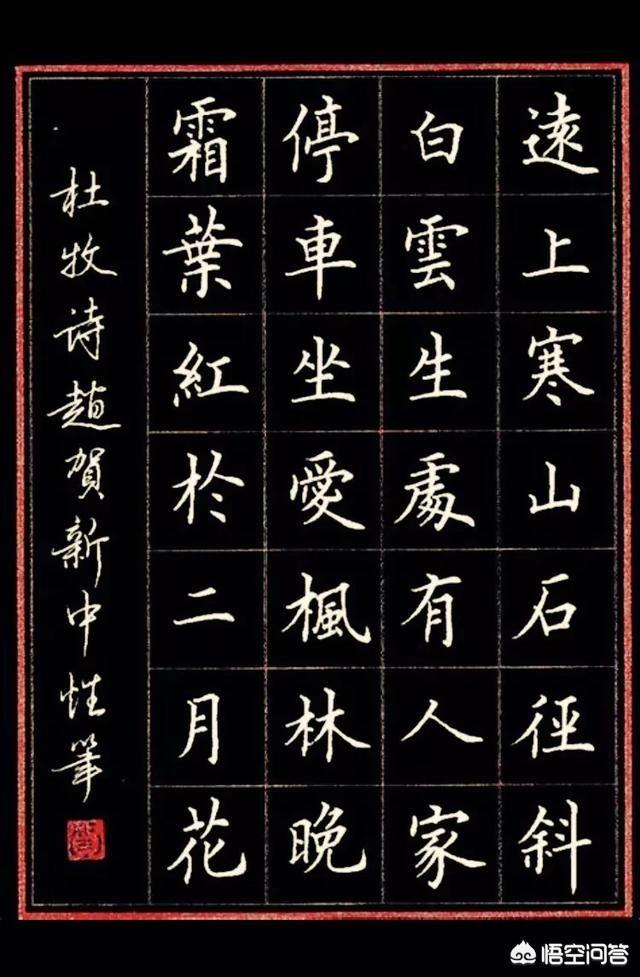 遠上寒山石徑斜
白雲生處有人家
停車坐愛楓林晚
霜葉紅於二月花
杜牧诗趙賀新中性筆
悟空问答